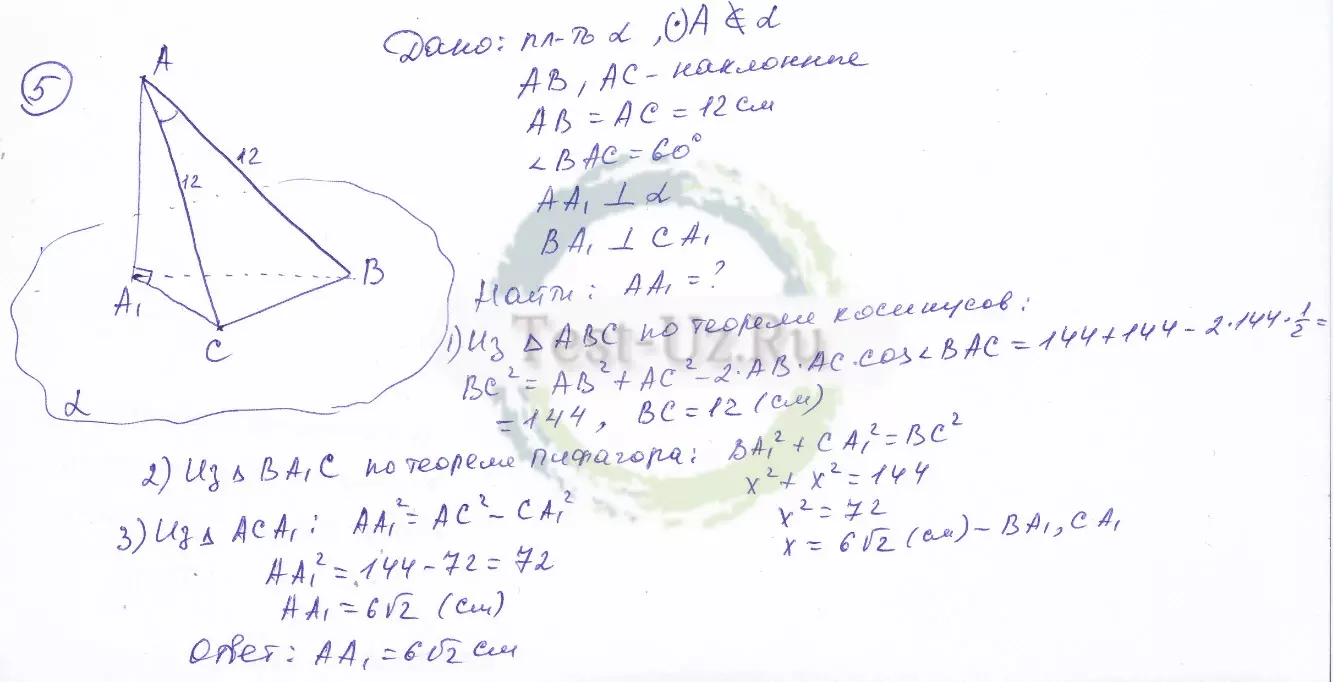 5
A
12
12
A₁
B
C
α
Дано: пл-ть α, (·)A ∉ α
AB, AC - наклонные
AB = AC = 12 см
∠BAC = 60°
AA₁ ⊥ α
BA₁ ⊥ CA₁
Найти: AA₁ = ?
1) Из Δ ABC по теореме косинусов:
BC² = AB² + AC² - 2·AB·AC·cos∠BAC = 144 + 144 - 2·144·1/2 =
= 144, BC = 12 (см)
2) Из Δ BA₁C по теореме Пифагора: BA₁² + CA₁² = BC²
x² + x² = 144
x² = 72
x = 6√2 (см) - BA₁, CA₁
3) Из Δ ACA₁: AA₁² = AC² - CA₁²
AA₁² = 144 - 72 = 72
AA₁ = 6√2 (см)
Ответ: AA₁ = 6√2 см
Test-Uz.Ru